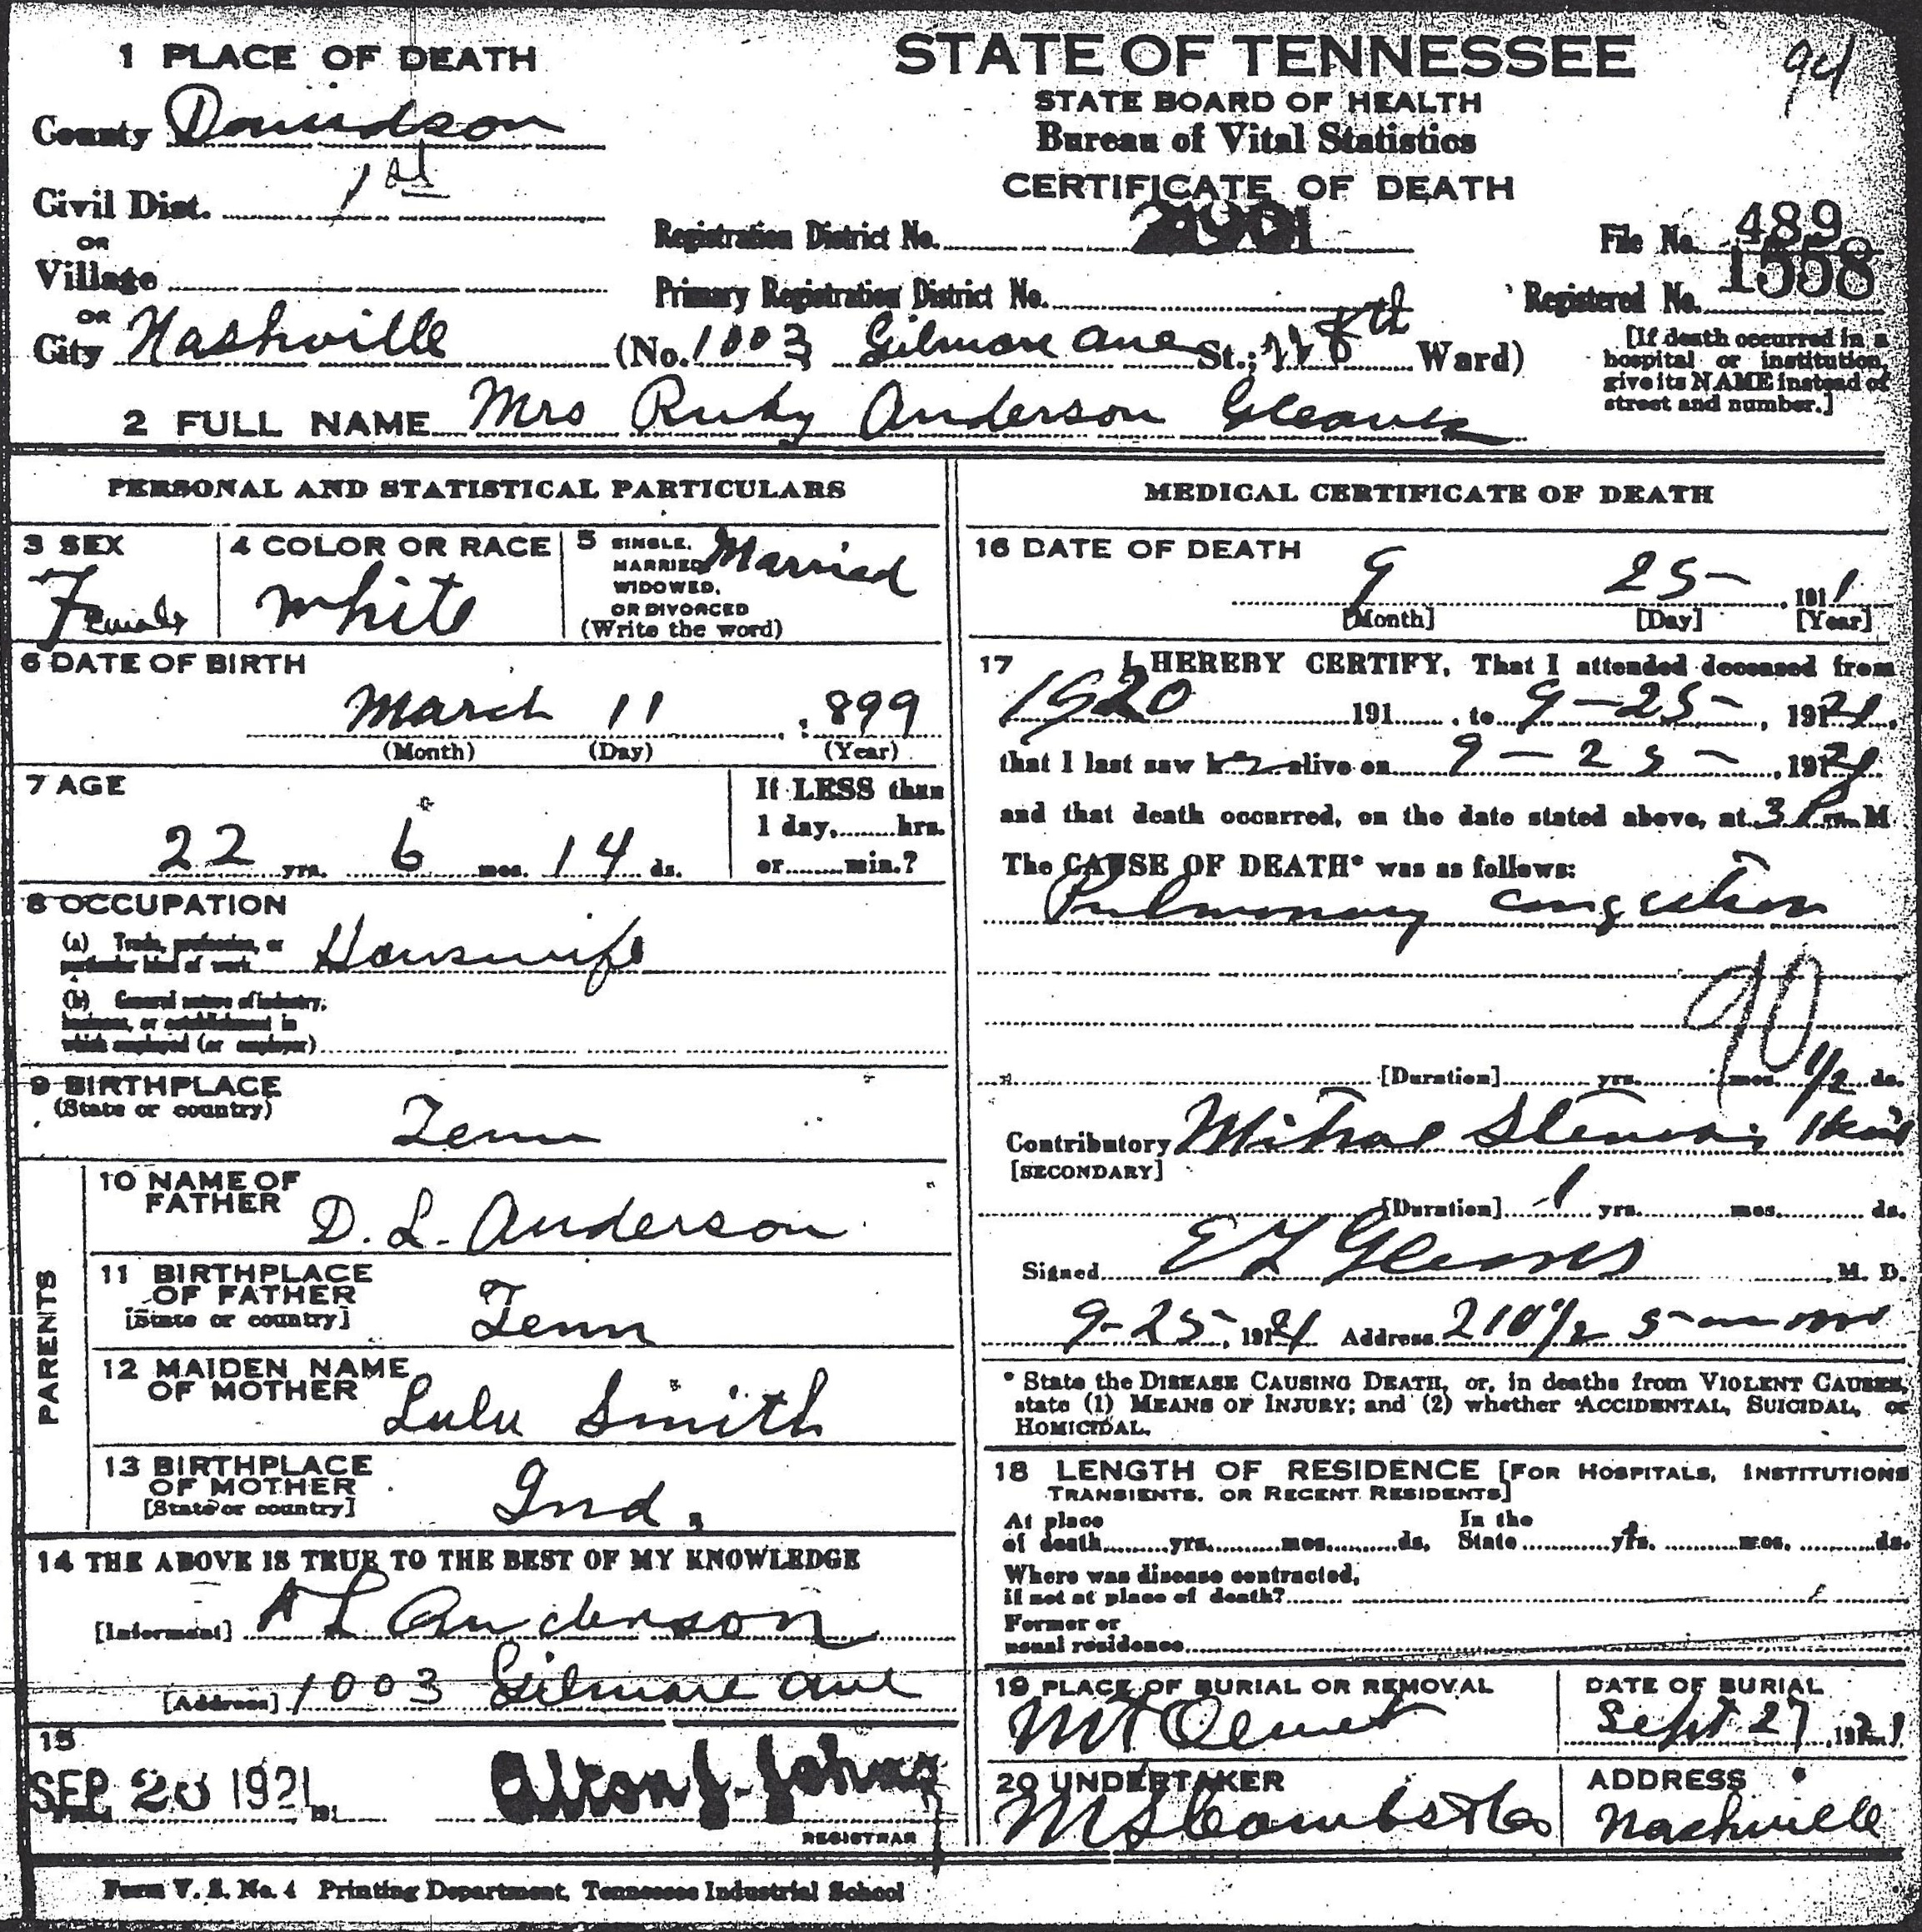 94
1 PLACE OF DEATH
County Davidson
Civil Dist. 1st
OR
Village
OR
City Nashville (No. 1003 Gilmore Ave St.; 8th Ward)
STATE OF TENNESSEE
STATE BOARD OF HEALTH
Bureau of Vital Statistics
CERTIFICATE OF DEATH
Registration District No.
Primary Registration District No.
File No. 489
Registered No. 1558
[If death occurred in a
hospital or institution,
give its NAME instead of
street and number.]
2 FULL NAME Mrs Ruby Anderson Gleaves
PERSONAL AND STATISTICAL PARTICULARS
3 SEX
Female
4 COLOR OR RACE
White
5 SINGLE,
MARRIED
WIDOWED,
OR DIVORCED
(Write the word)
Married
6 DATE OF BIRTH
March 11, 899
(Month) (Day) (Year)
7 AGE
22 yrs. 6 mos. 14 ds.
If LESS than
1 day, hrs.
or min.?
8 OCCUPATION
(a) Trade, profession, or
particular kind of work Housewife
(b) General nature of industry,
business, or establishment in
which employed (or employer)
9 BIRTHPLACE
(State or country)
Tenn
PARENTS
10 NAME OF
FATHER
D. L. Anderson
11 BIRTHPLACE
OF FATHER
[State or country]
Tenn
12 MAIDEN NAME
OF MOTHER
Lulu Smith
13 BIRTHPLACE
OF MOTHER
[State or country]
Ind.
14 THE ABOVE IS TRUE TO THE BEST OF MY KNOWLEDGE
[Informant] L Anderson
[Address] 1003 Gilmore Ave
15
SEP 1921 191
Alton J. Johns
REGISTRAR
MEDICAL CERTIFICATE OF DEATH
16 DATE OF DEATH
9 25 1911
[Month] [Day] [Year]
17 I HEREBY CERTIFY, That I attended deceased from
1920 191 , to 9-25-, 1921,
that I last saw her alive on 9-25-, 1921
and that death occurred, on the date stated above, at 3 P.m. M
The CAUSE OF DEATH* was as follows:
Pulmonary congestion
90
[Duration] yrs. mos. 1/2 ds.
Contributory Mitral Stenosis
[SECONDARY]
[Duration] 1 yrs. mos. ds.
Signed E L Gleaves M. D.
9-25, 1921 Address 210 1/2
* State the DISEASE CAUSING DEATH, or, in deaths from VIOLENT CAUSES,
state (1) MEANS OF INJURY; and (2) whether ACCIDENTAL, SUICIDAL, or
HOMICIDAL.
18 LENGTH OF RESIDENCE [FOR HOSPITALS, INSTITUTIONS
TRANSIENTS, OR RECENT RESIDENTS]
At place
of death yrs. mos. ds.
In the
State yrs. mos. ds.
Where was disease contracted,
if not at place of death?
Former or
usual residence
19 PLACE OF BURIAL OR REMOVAL
Mt Olivet
DATE OF BURIAL
Sept 27, 1921
20 UNDERTAKER
M S Combs & Co
ADDRESS
Nashville
Form V. S. No. 4 Printing Department, Tennessee Industrial School